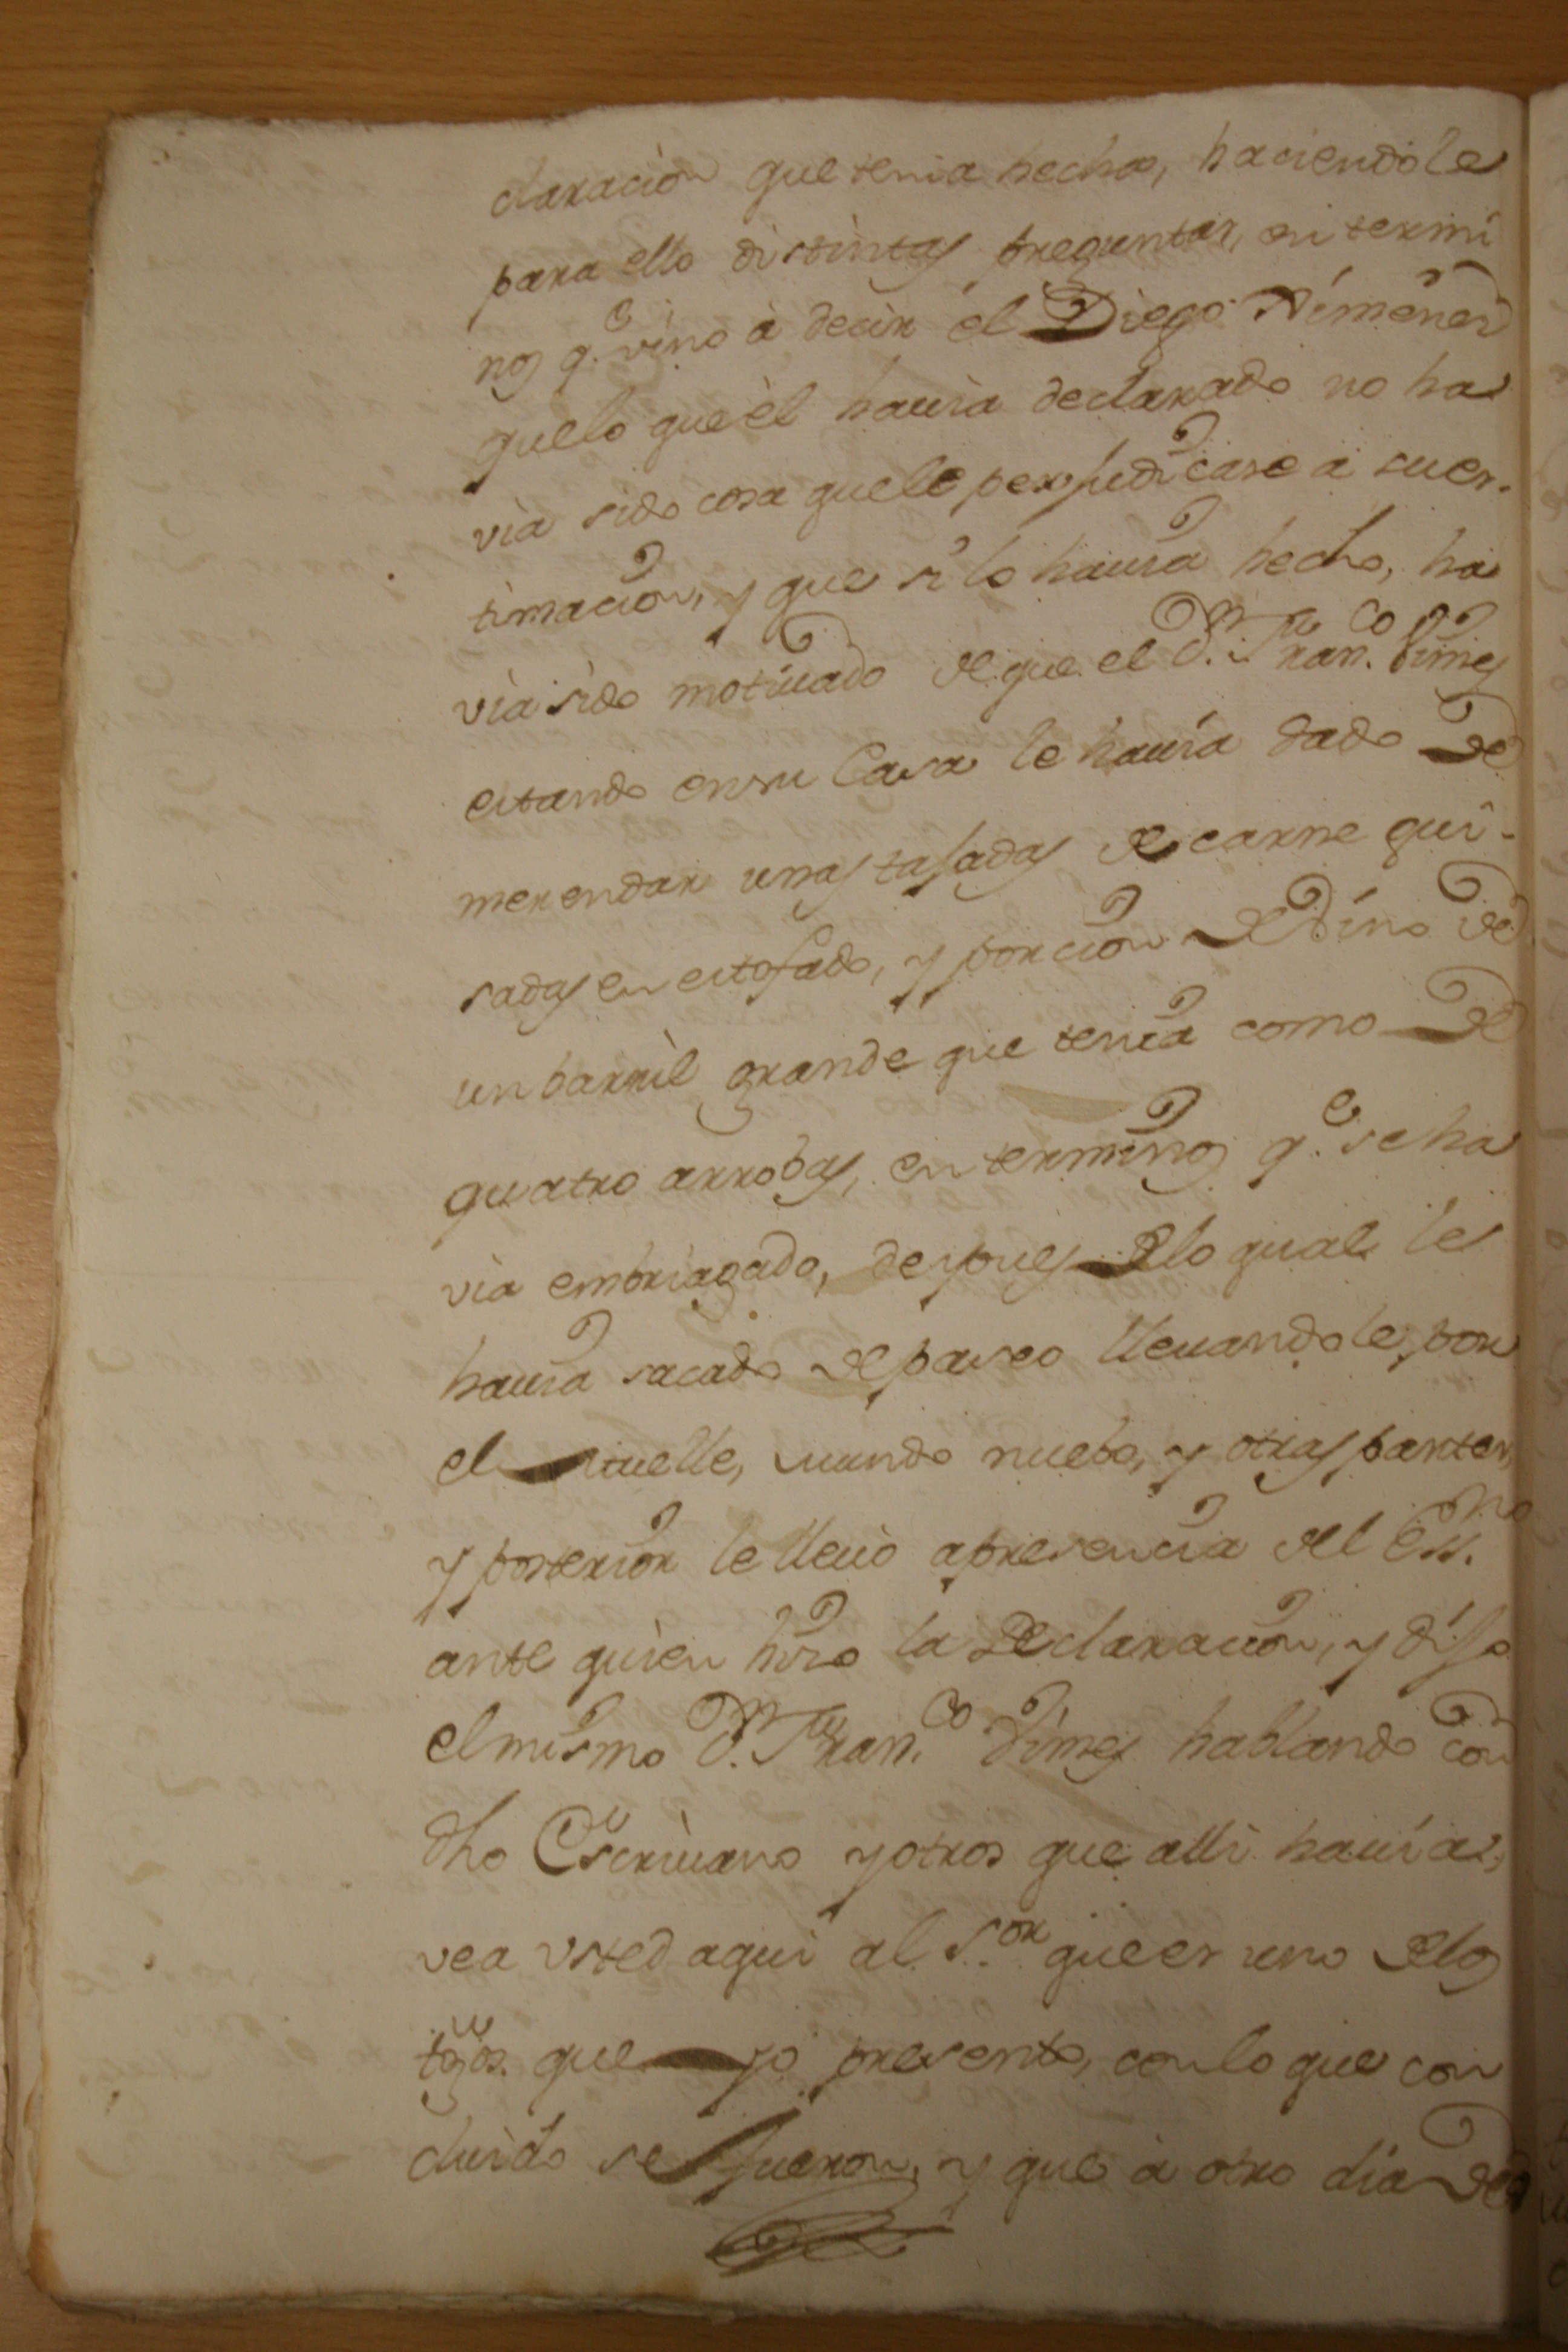 claración que tenia hecha, haciendole
para ello distintas preguntas, en termi
nos q.e vino à decir él Diego Ximenez
que lo que èl hauia declarado no ha
via sido cosa que le perjudicase a su es-
timacion, y que si lo hauia hecho, ha
via sido motiuado de que el D.n Fran.co Dimes
estando en su Casa le hauia dado de
merendar unas tajadas de carne gui-
sadas en estofado, y porcion de Vino de
un barril grande que tenia como de
quatro arrobas, en terminos q.e se ha
via embriagado, despues de lo qual le
hauia sacado de paseo lleuandole por
el Muelle, mundo nuebo, y otras partes,
y posterior le lleuò a presencia del Ess.no
ante quien hizo la Declaracion, y dijo
el mismo D.n Fran.co Dimes hablando con
dho Escriuano y otros que alli hauia,
vea vsted aqui al S.or que es uno de los
tgos. que yo presento, con lo que con
cluido se fueron, y que à otro dia de